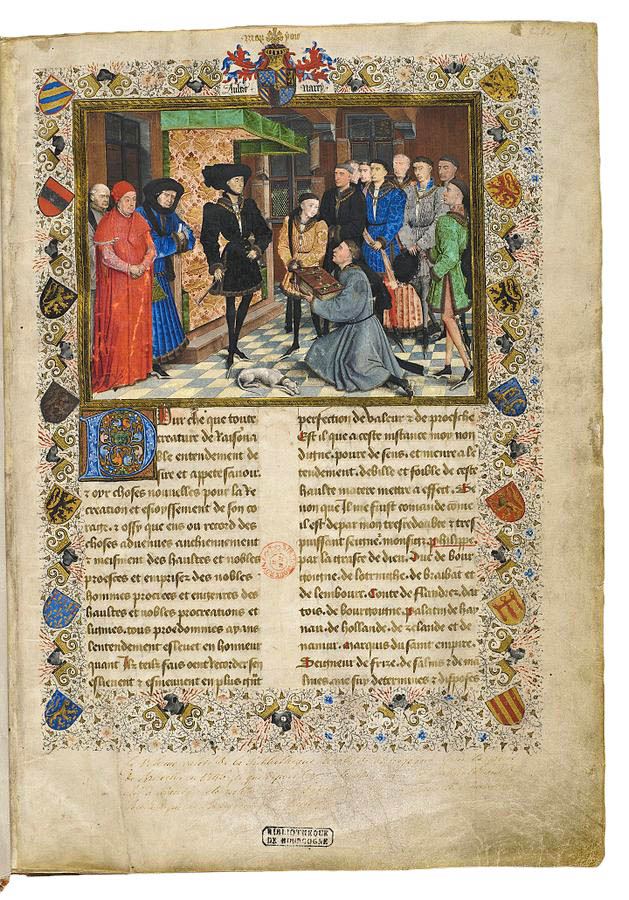 aultre
naray
Pour che que toute
creature de Raison a
ble entendement de
sire et appete sauou
r oyr choses nouuelles pour la Re
creation et esioyssement de son co
rage. et ossy que en ou record des
choses aduenues anchiennement
et meisment des haultes et nobles
proesces et emprises des nobles
hommes procrees et engenres des
haultes et nobles procreations et
lignies. tous proedommes ayans
lentendement esleuet en honneur
quant Ilz telz fais oent recorder sen
esliesent et esmeuuent en plus grant
perfection de valeur et de proesche
Est il que a ceste instance moy non
digne. poure de sens. et menre a len
tendement. debille et foible de ceste
haulte matere mettre a effect. Se
non que Il me fuist comande come
il est de par mon tresredoubte et tres
puissant seigneur monsigneur Philippe
par la grasce de dieu. Duc de bour
goingne. de lotringhe. de braibat et
de lembourc. Conte de flandrez. dar
tois. de bourgoingne. palatin de hay
nau. de hollande. de zelande et de
namur. Marquis du saint empire.
Seigneur de frize. de salins et de ma
lines. me suy determines et disposes
BIBLIOTHEQUE
DE BOURGOGNE